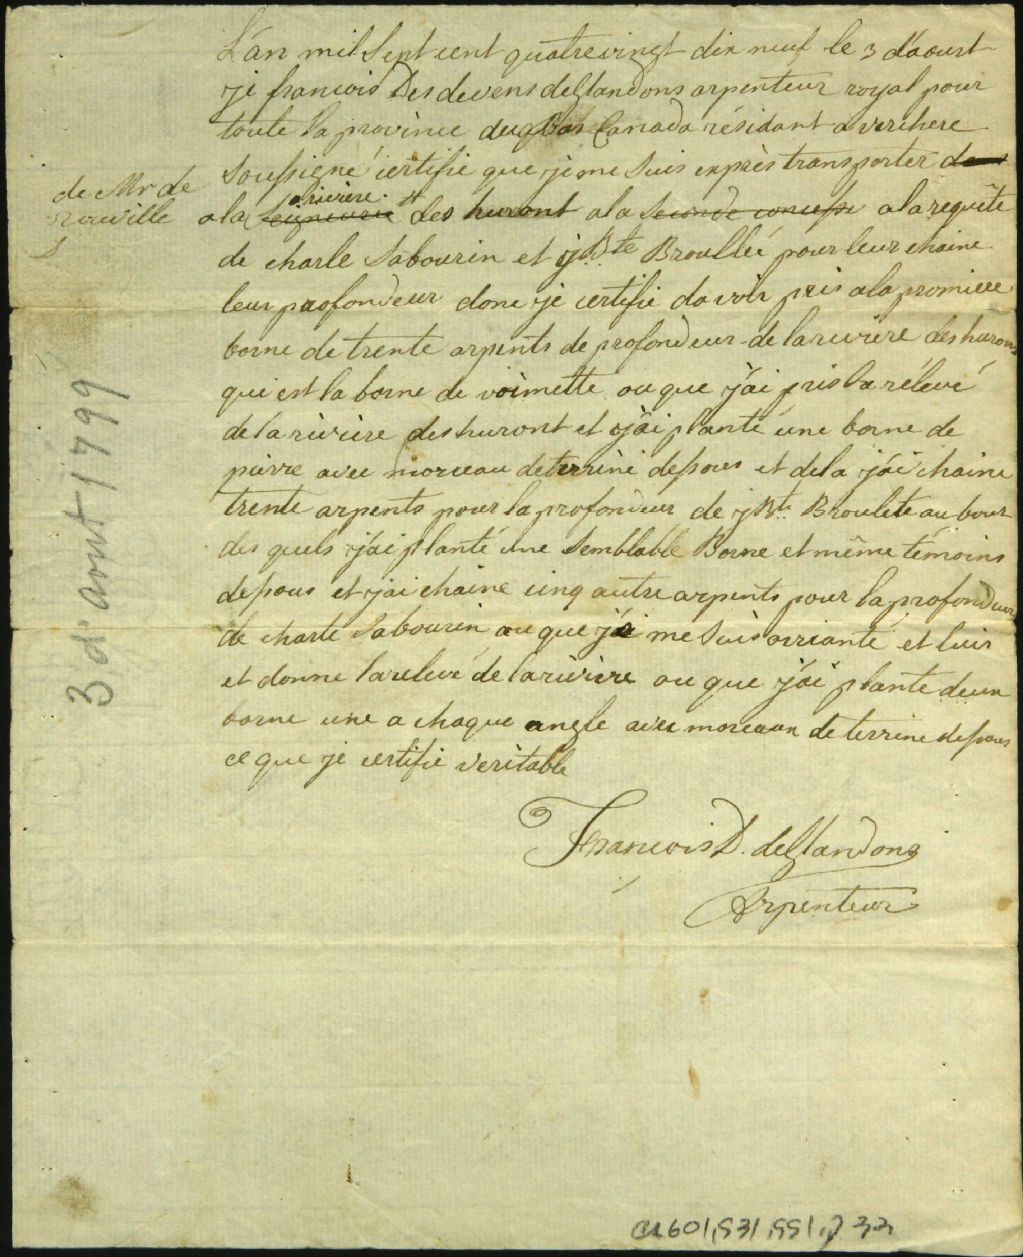 L'an mil Sept cent quatrevingt dix neuf le 3 d'aoust
je francois Des devens deglandons arpenteur royal pour
toute la province du bas Canada résidant a verchere
Soussigné certifie que je me suis exprès transporter
de Mr de
rouville
rivière
a la Seigneurie des huront a la Seconde concess a la requête
de charle Sabourin et j Bte Broullié pour leur chaine
leur profondeur donc je certifie davoir pris a la promiere
borne de trente arpents de profondeur de la riviere des hurons
qui est la borne de voimette ou que j'ai pris la rélevé
de la rivière des huront et j'ai planté une borne de
pierre avec morceau de terrine dessous et de la j'ai chaine
trente arpents pour la profondeur de j Bte Broulete au bout
des quels j'ai planté une Semblable Borne et même témoins
dessous et j'ai chaine cinq autre arpents pour la profondeur
de charle Sabourin ou que j'ai me suis orrianté et luis
et donne la relevé de la rivière ou que j'ai plante deux
borne une a chaque angle avec moreaux de terrine dessous
ce que je certifie veritable
Francois D. deglandons
Arpenteur
3 d'aout 1799
CA601,S31,SS1,D33